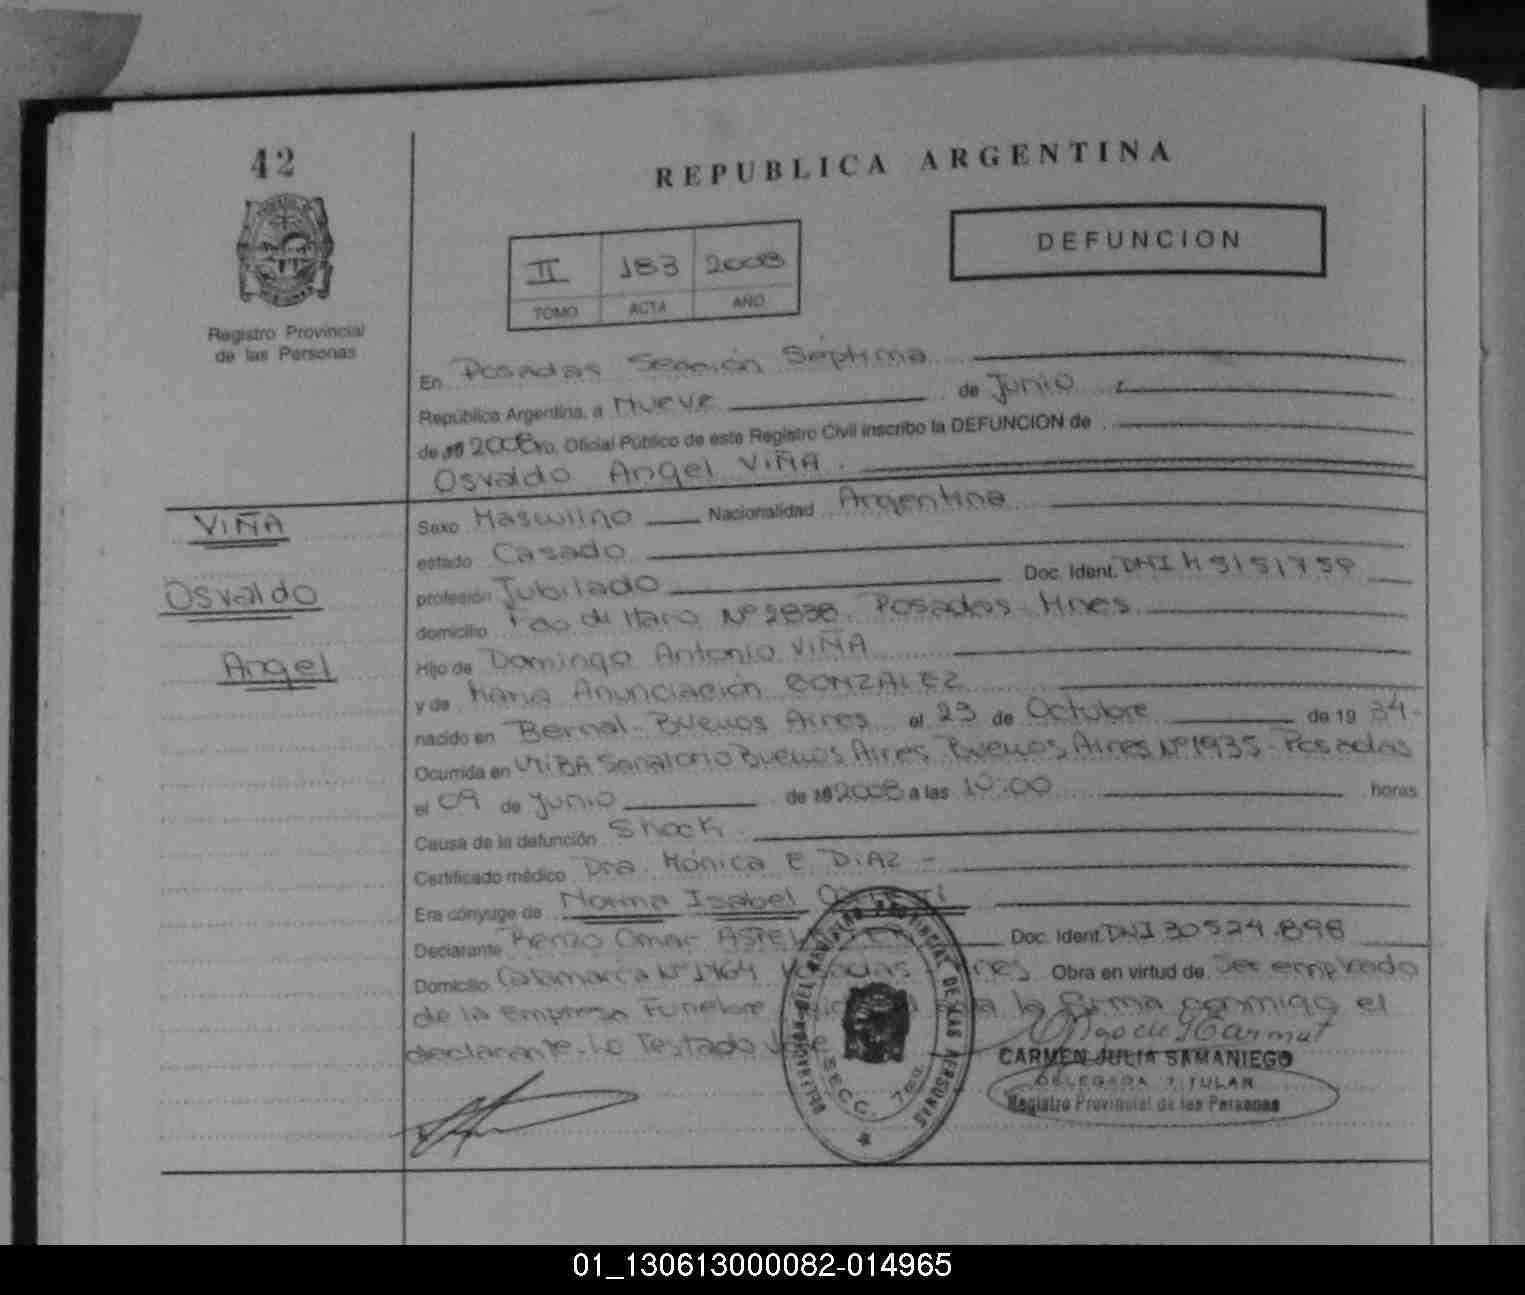 42
REPUBLICA ARGENTINA
DEFUNCION
II 183 2008
TOMO ACTA AÑO
Registro Provincial
de las Personas
En Posadas Sección Séptima
República Argentina, a Nueve de Junio
de 19 2008 yo, Oficial Público de este Registro Civil inscribo la DEFUNCION de
Osvaldo Angel VIÑA.
VIÑA
Osvaldo
Angel
Sexo Masculino Nacionalidad Argentina
estado Casado
profesión Jubilado Doc. Ident. DNI
domicilio Fco de Haro Nº 2838. Posadas - Mnes
Hijo de Domingo Antonio VIÑA
y de Maria Anunciación GONZALEZ
nacido en Bernal - Buenos Aires el 23 de Octubre de 19 34-
Ocurrida en Sanatorio Buenos Aires Buenos Aires Nº 1935 - Posadas
el 09 de Junio de 19 2008 a las horas
Causa de la defunción Shock.
Certificado médico Dra Mónica E DiAZ -
Era cónyuge de Norma Isabel
Declarante Renzo Omar Doc. Ident. DNI 30524.898
Domicilio Catamarca Nº 1464 Posadas Mnes Obra en virtud de Ser empleado
de la Empresa Funebre la firma conmigo el
declarante. Lo Testado
DELEGACION DEL REGISTRO PROVINCIAL DE LAS PERSONAS
SECC. 7ma.
CARMEN JULIA SAMANIEGO
DELEGADA TITULAR
Registro Provincial de las Personas
01_130613000082-014965